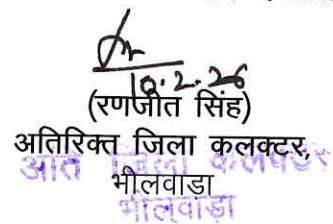 10.2.26
(रणजीत सिंह)
अतिरिक्त जिला कलक्टर,
भीलवाड़ा
अति जिला कलक्टर
भीलवाड़ा